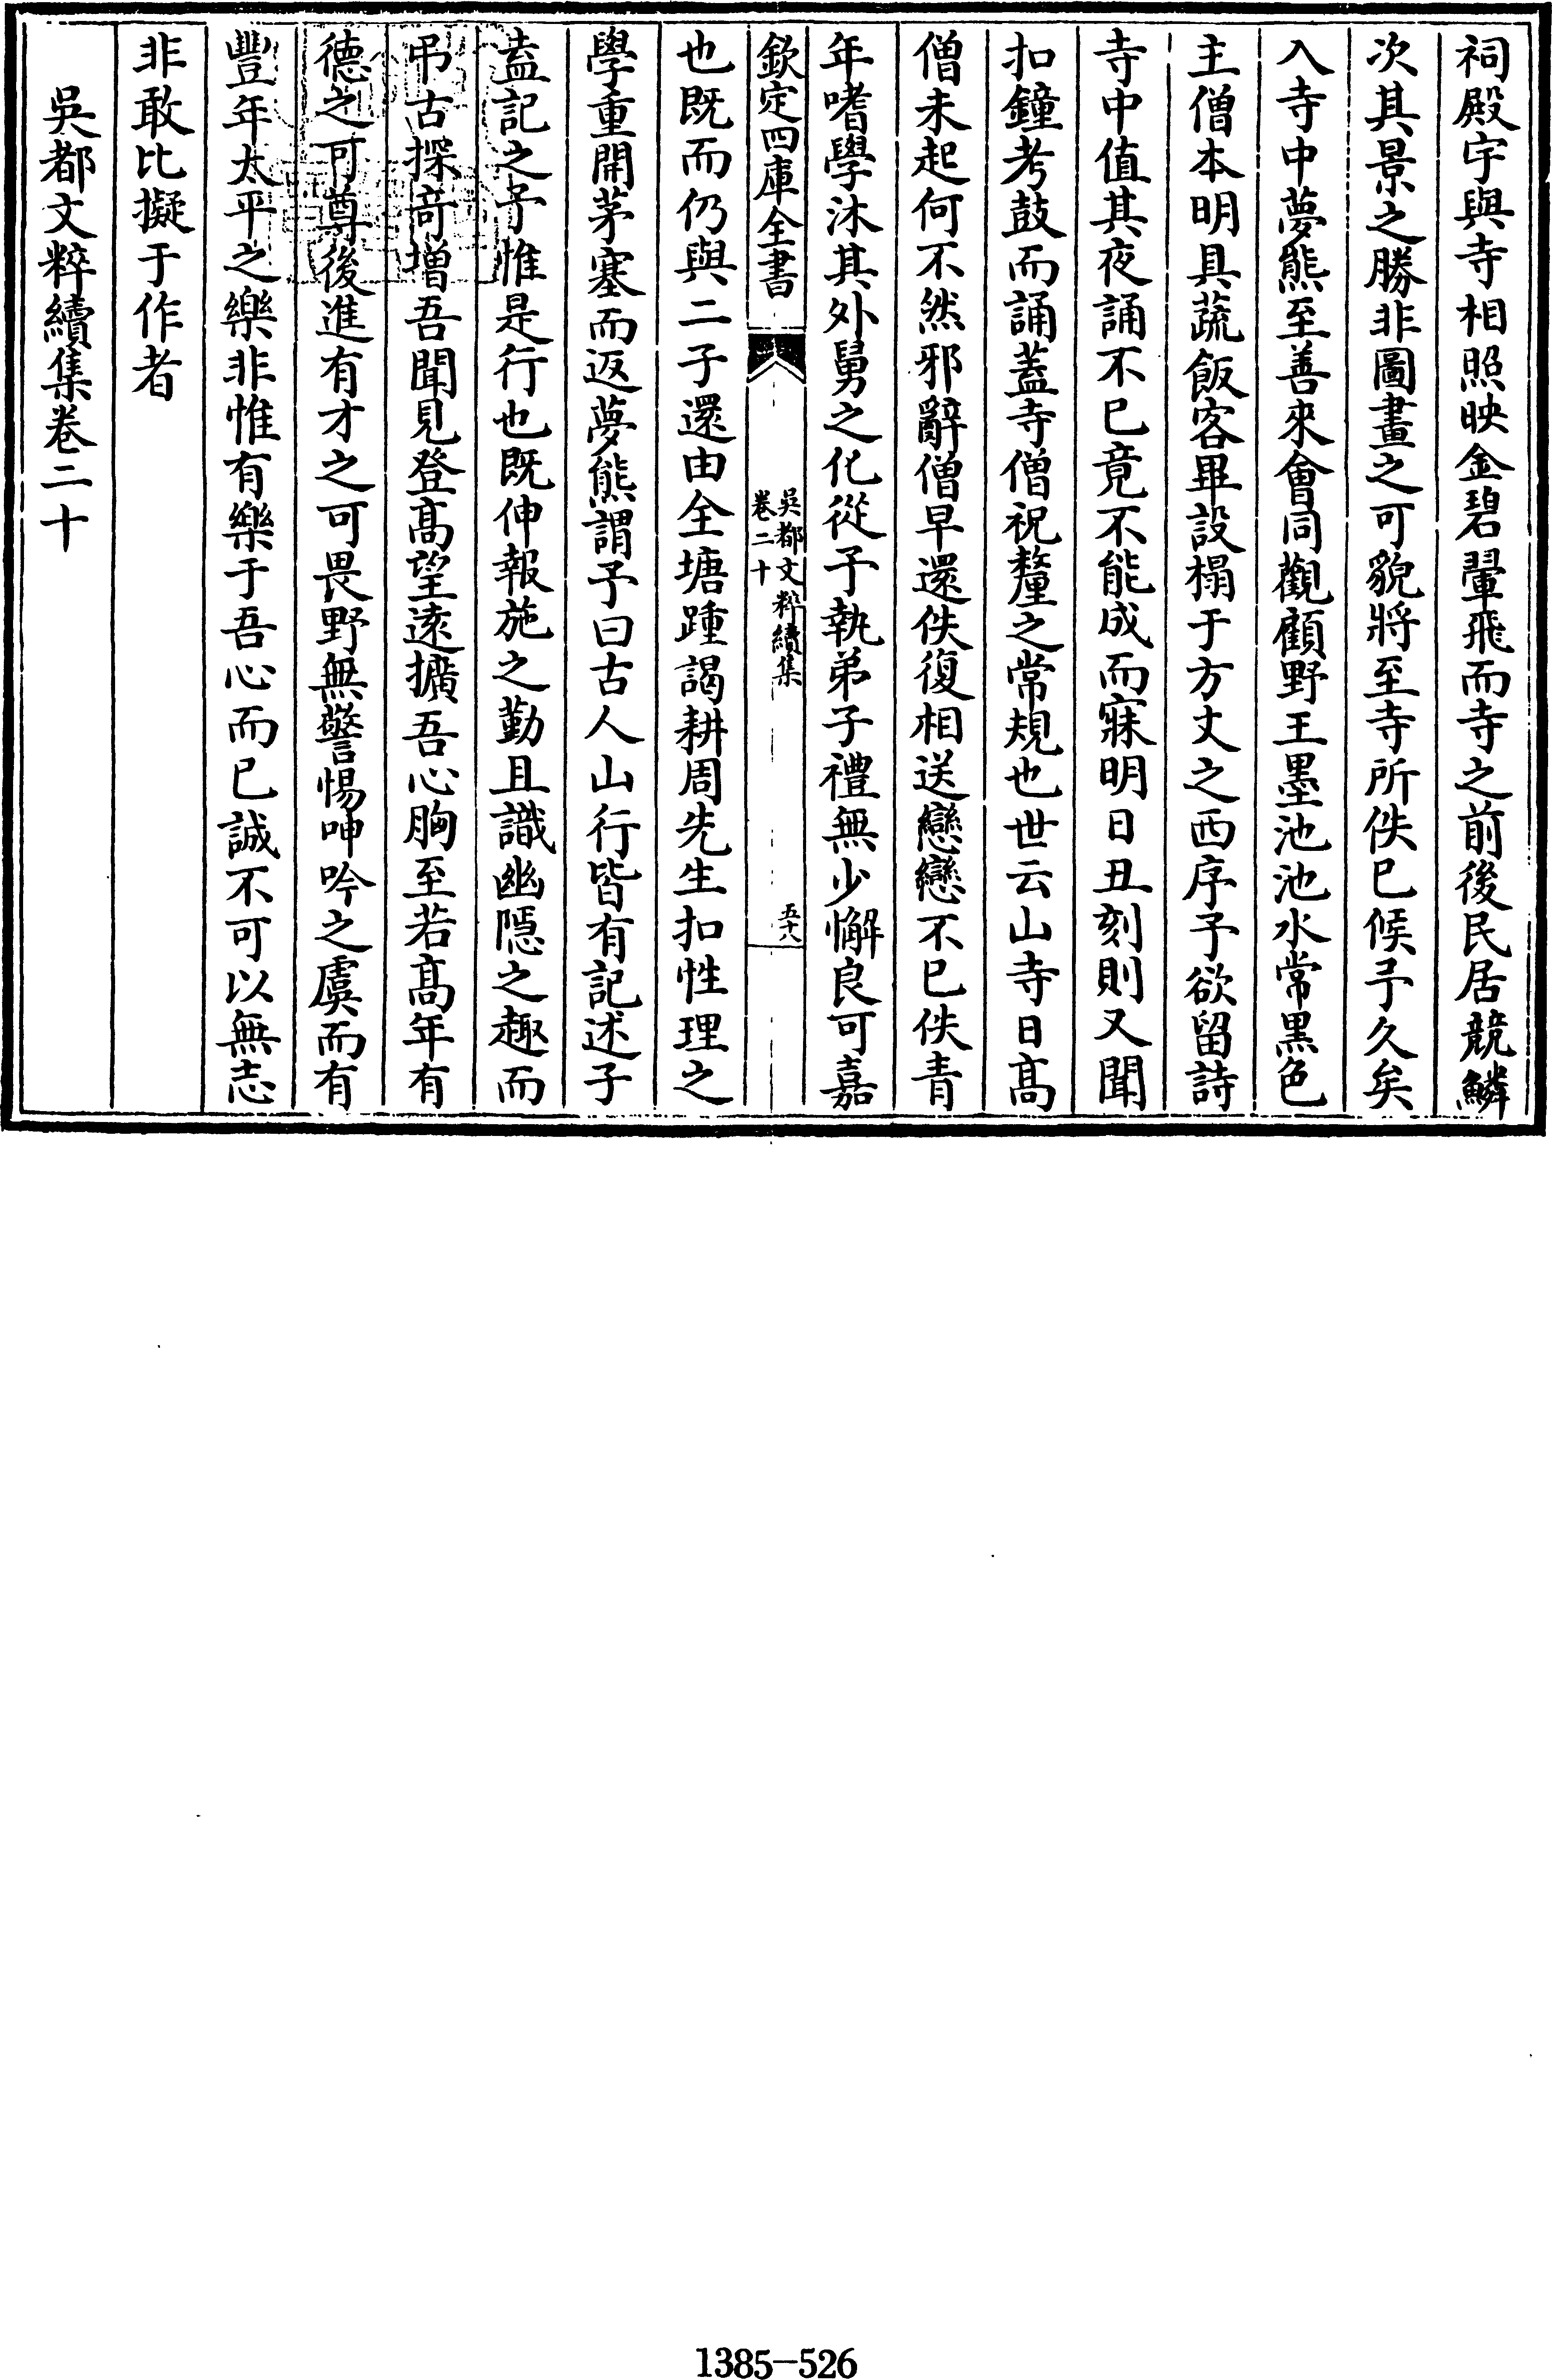 祠殿宇與寺相照映金碧翬飛而寺之前後民居競鱗
次其景之勝非圖畫之可貌將至寺所佚已候予久矣
入寺中夢熊至善來會同觀顧野王墨池池水常黑色
主僧本明具蔬飯客畢設榻于方丈之西序予欲留詩
寺中值其夜誦不已竟不能成而寐明日丑刻則又聞
扣鐘考鼓而誦蓋寺僧祝釐之常規也世云山寺日高
僧未起何不然邪辭僧早還佚復相送戀戀不已佚青
年嗜學沐其外舅之化從予執弟子禮無少懈良可嘉
欽定四庫全書
吳都文粹續集
卷二十
五十八
也既而仍與二子還由全塘踵謁耕周先生扣性理之
學重開茅塞而返夢熊謂予曰古人山行皆有記述子
盍記之予惟是行也既伸報施之勤且識幽隱之趣而
弔古探奇增吾聞見登高望遠擴吾心胸至若高年有
德之可尊後進有才之可畏野無警惕呻吟之虞而有
豐年太平之樂非惟有樂于吾心而已誠不可以無志
非敢比擬于作者
吳都文粹續集卷二十
1385-526